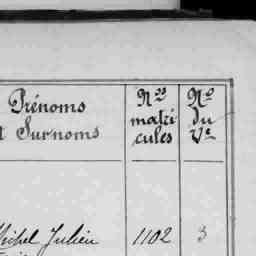 Prénoms
et Surnoms
Nos
matri
cules
No
du
Vre
Michel Julien 1102 3